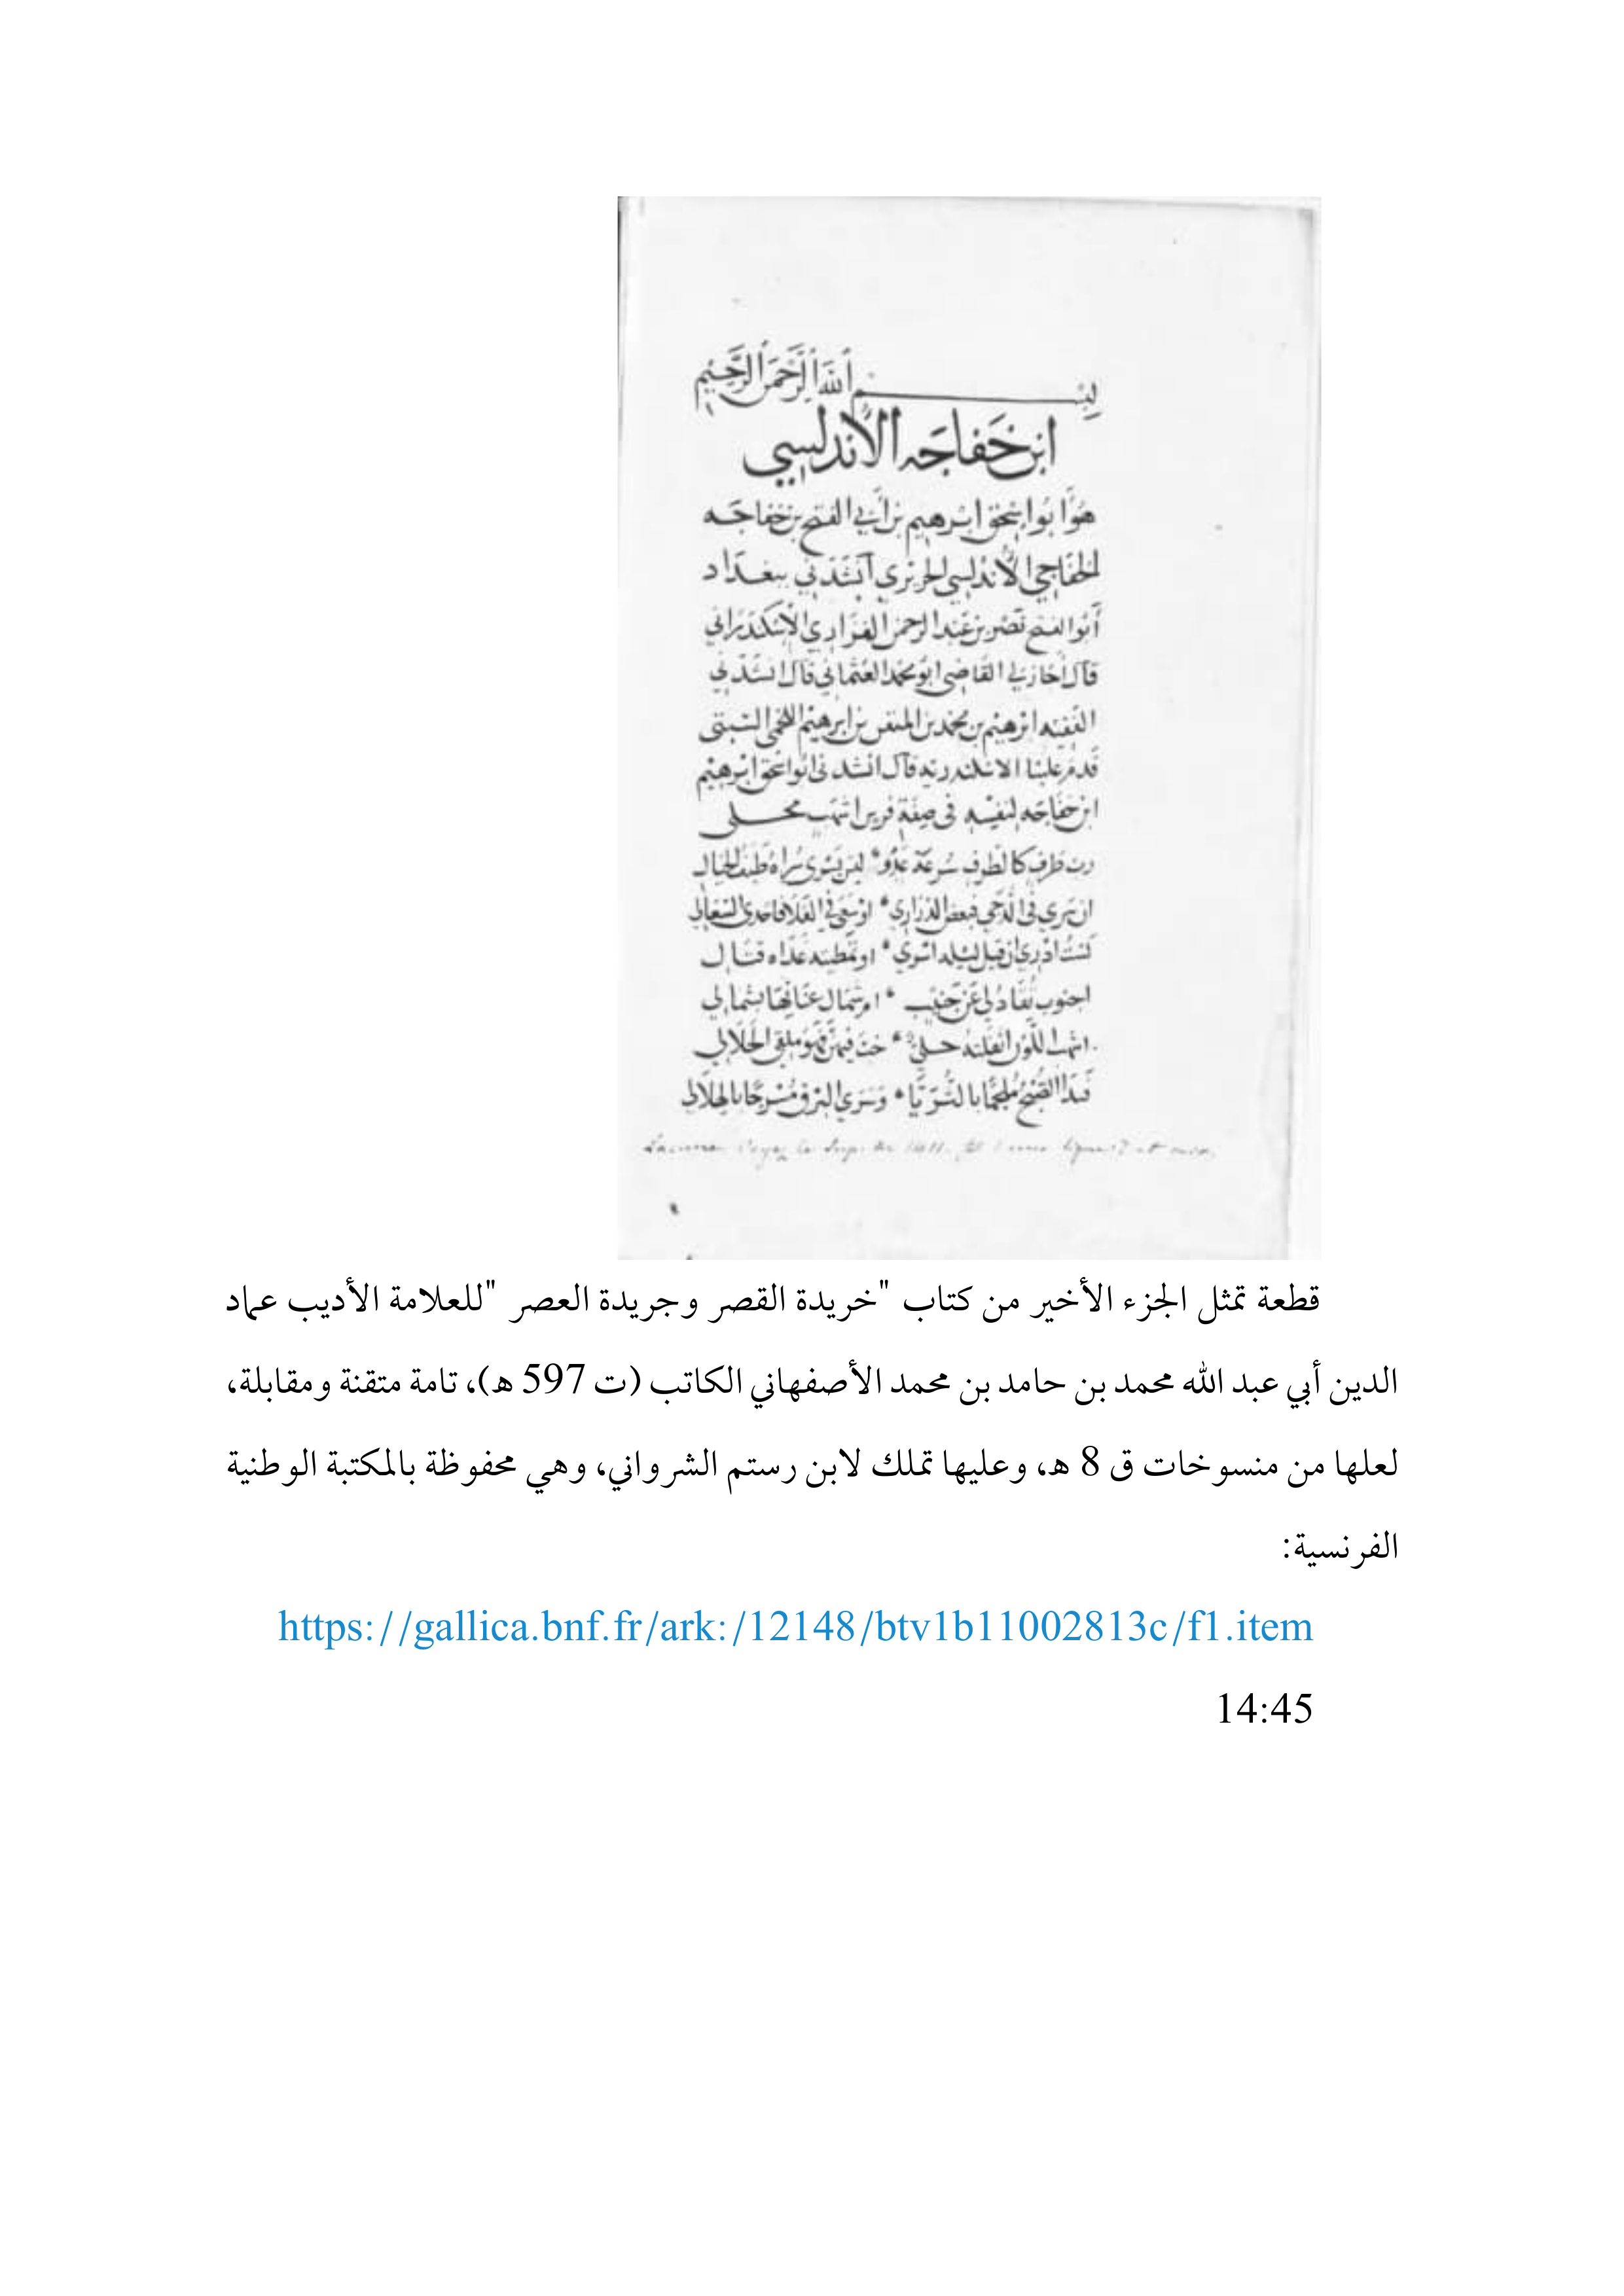 بسم الله الرحمن الرحيم
ابن خفاجه الأندلسي
هو أبو اسحق ابرهيم بن أبي الفتح بن خفاجه
الخفاجي الأندلسي الجزيري أنشدني ببغداد
أبو الفتح نصر بن عبد الرحمن الفزاري الاسكندراني
قال أجاز لي القاضي ابو محمد العثماني قال انشدني
الفقيه ابرهيم بن محمد بن ابرهيم اللخمي السبتي
قدم علينا الاسكندرية قال انشدني ابو اسحق ابرهيم
ابن خفاجه لنفسه في صفة فرس اشهب محلى
رب طرف كالطرف سرعة عدو ليس يسري سراه طيف الخيال
ان سري في الدجى فبعض الدراري او سعى في الفلا فاحدى السعالي
لست ادري ان قبل ليلة اسري او تمطيه غداة قتال
اجنوب يقاد لي عن جنيب ام شمال عنانها بشمالي
اشهب اللون اثقلته حلي خب فيهن فهو ملقى الجلال
فبدا الصبح ملجما بالثريا وسرى البرق مسرجا بالهلال
Lacune Voyez le Sup. 1411.
قطعة تمثل الجزء الأخير من كتاب "خريدة القصر وجريدة العصر "للعلامة الأديب عماد
الدين أبي عبد الله محمد بن حامد بن محمد الأصفهاني الكاتب (ت 597 هـ)، تامة متقنة ومقابلة،
لعلها من منسوخات ق 8 هـ، وعليها تملك لابن رستم الشرواني، وهي محفوظة بالمكتبة الوطنية
الفرنسية:
https://gallica.bnf.fr/ark:/12148/btv1b11002813c/f1.item
14:45